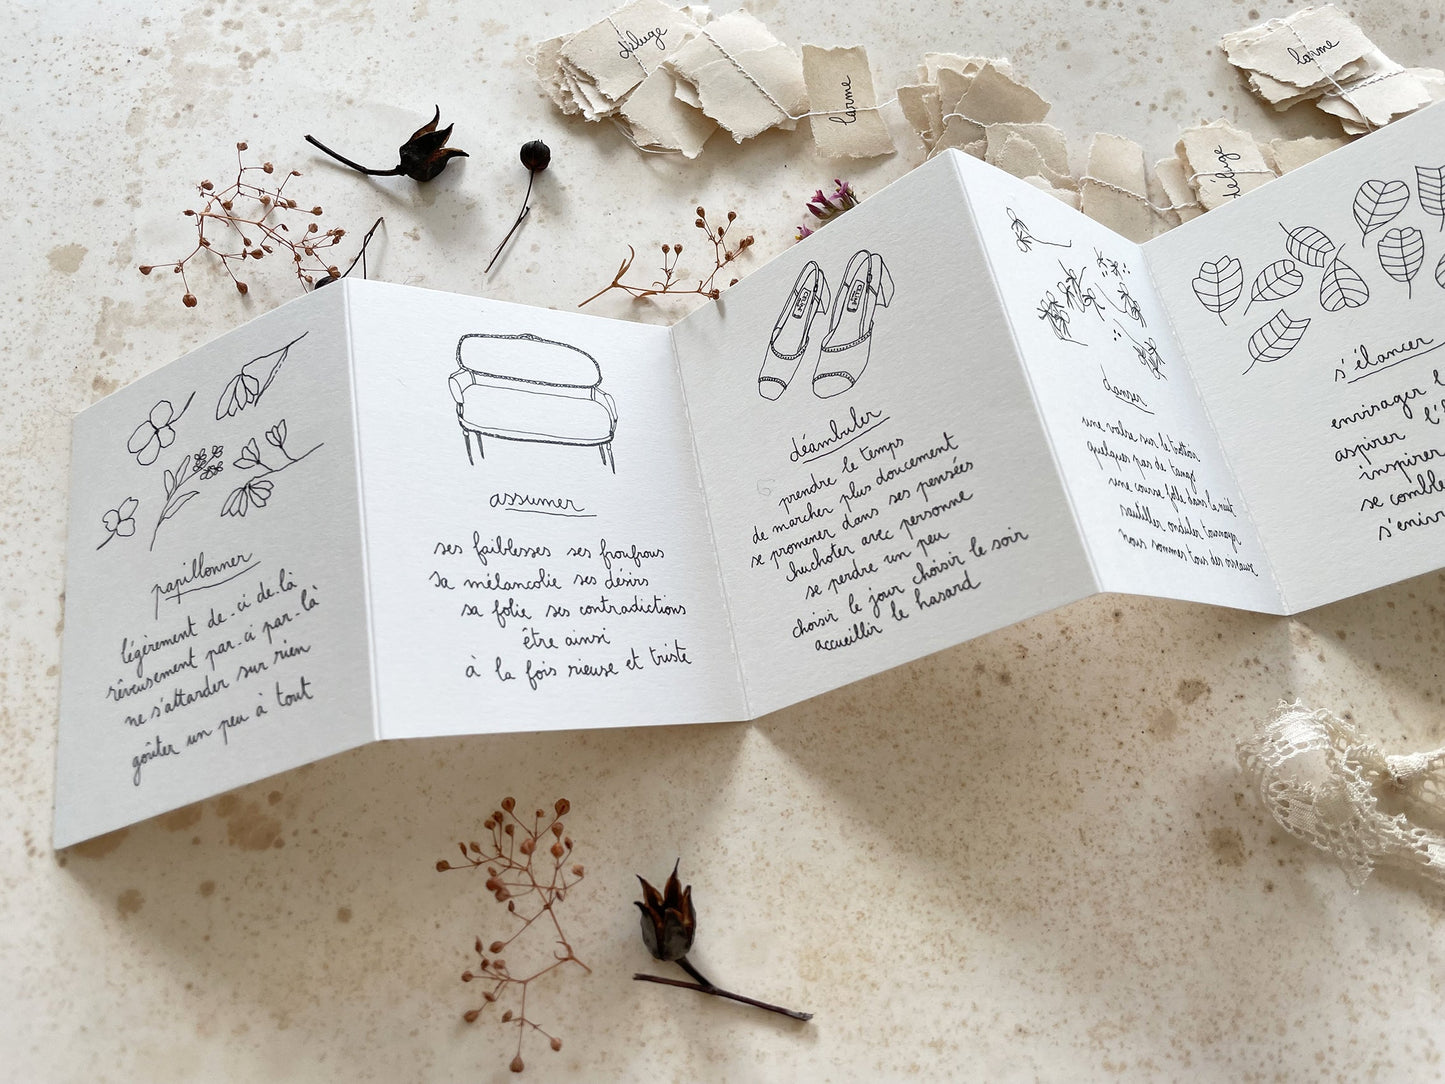 déluge
larme
larme
déluge
papillonner
légèrement de-ci de-là
rêveusement par-ci par-là
ne s'attarder sur rien
goûter un peu à tout
assumer
ses faiblesses ses froufrous
sa mélancolie ses désirs
sa folie ses contradictions
être ainsi
à la fois rieuse et triste
déambuler
prendre le temps
de marcher plus doucement
se promener dans ses pensées
chuchoter avec personne
se perdre un peu
choisir le jour choisir le soir
accueillir le hasard
danser
une valse sur le trottoir
quelques pas de tango
une course folle dans la nuit
sautiller onduler tournoyer
nous sommes tous des oiseaux
s'élancer
envisager
aspirer
inspirer
se comble
s'enivr